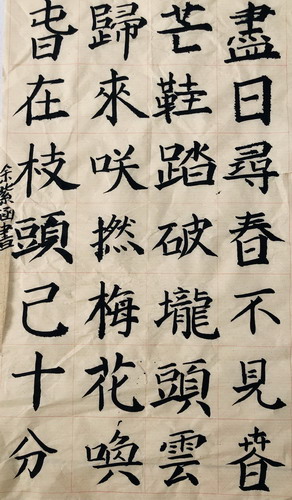 盡日尋春不見萅
芒鞋踏破壠頭雲
歸來咲撚梅花喚
旾在枝頭己十分
余紫涵書